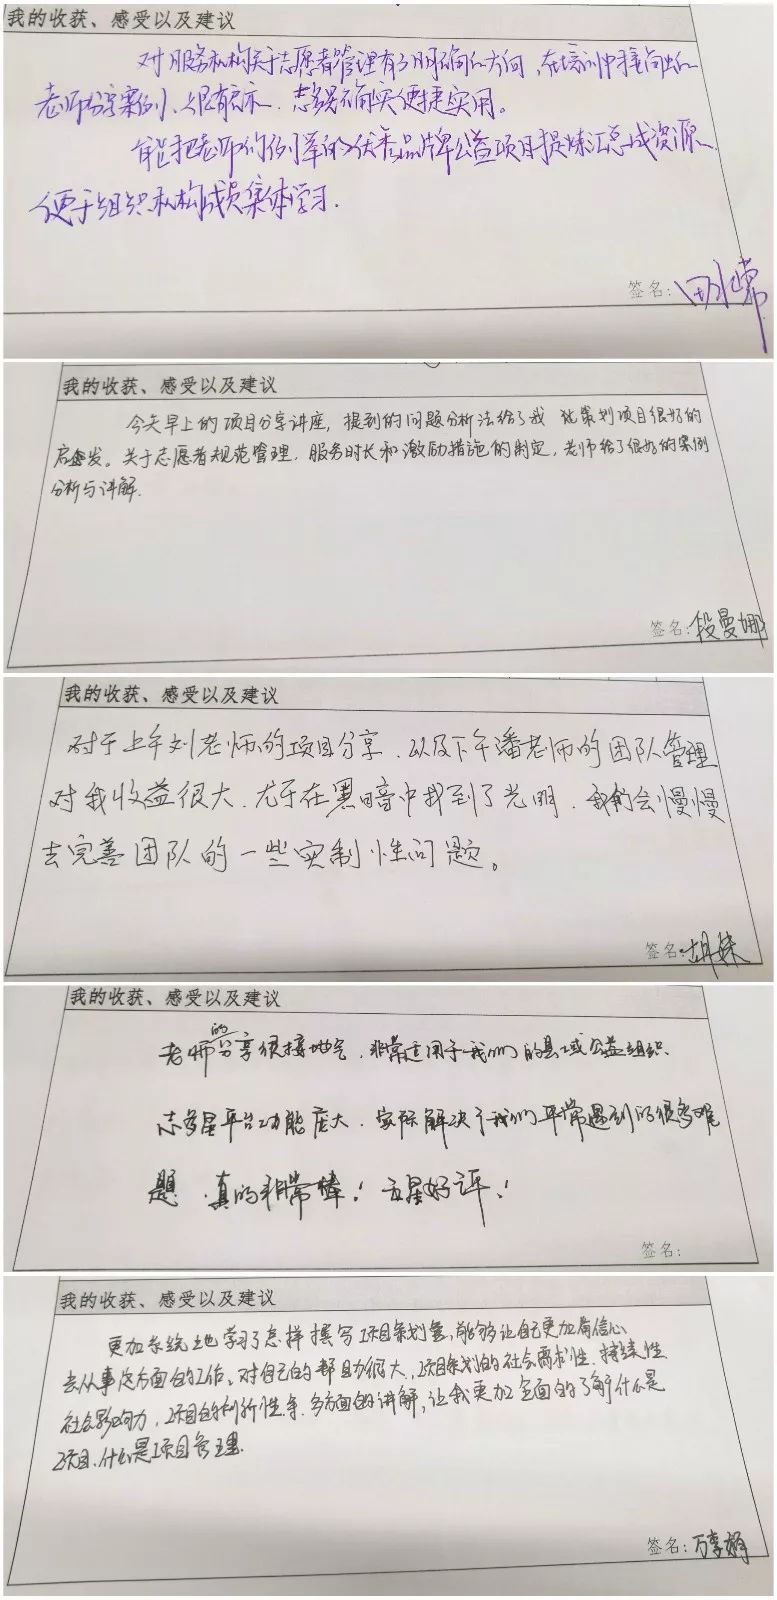 我的收获、感受以及建议
对服务机构关于志愿者管理有了明确的方向,在培训中接触的
老师分享案例,很有启示.志多星确实便捷实用。
能把老师们例举的优秀品牌公益项目提炼汇总成资源
便于组织机构成员集体学习.
签名:
我的收获、感受以及建议
今天早上的项目分享讲座,提到的问题分析法给了我 策划项目很好的
启发。关于志愿者规范管理.服务时长和激励措施的制定,老师给了很好的案例
分析与讲解.
签名:段曼娜
我的收获、感受以及建议
对于上午刘老师的项目分享.以及下午潘老师的团队管理
对我收益很大.尤于在黑暗中找到了光明.我们会慢慢
去完善团队的一些实制性问题。
签名:胡
我的收获、感受以及建议
老师的分享很接地气.非常适用于我们的县域公益组织.
志多星平台功能庞大.实际解决了我们平常遇到的很多难
题.真的非常棒!五星好评!
签名:
我的收获、感受以及建议
更加系统地学习了怎样撰写项目策划案,能够让自己更加有信心
去从事这方面的工作、对自己的帮助很大,项目策划的社会需求性.持续性
社会影响力,项目的创新性等.多方面的讲解,让我更加全面的了解什么是
项目.什么是项目管理.
签名:万李娟